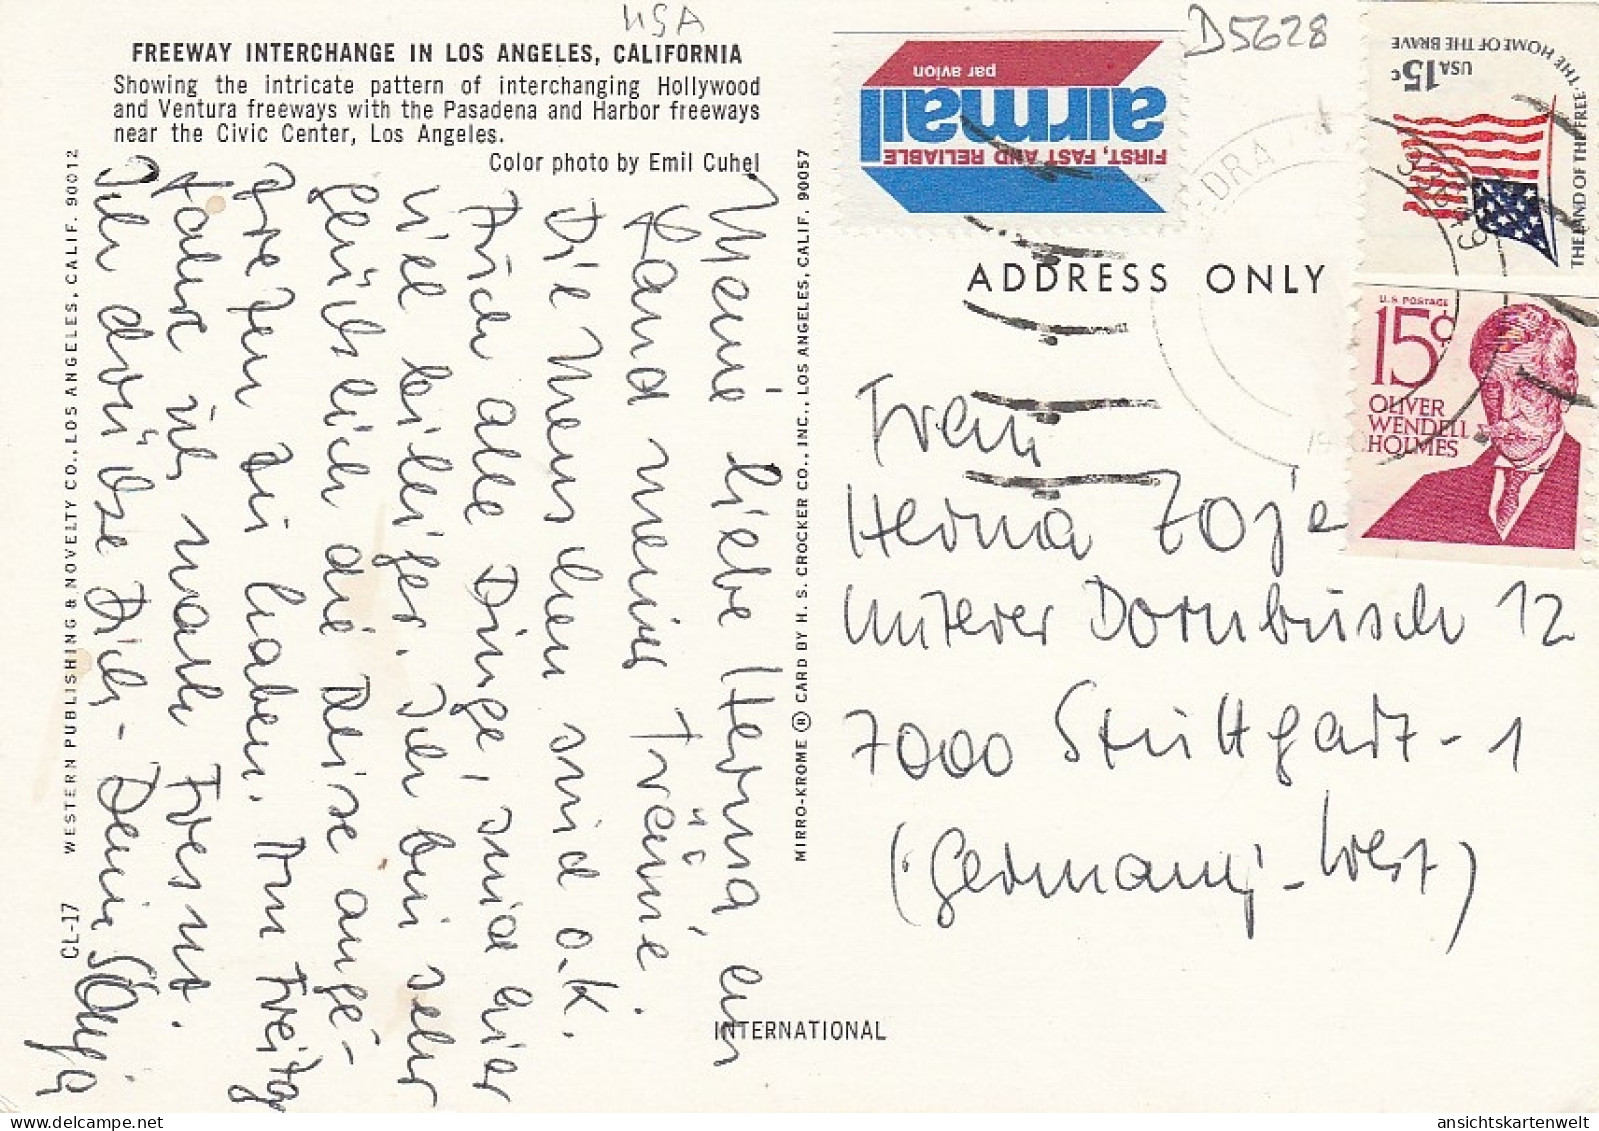 USA
D5628
FREEWAY INTERCHANGE IN LOS ANGELES, CALIFORNIA
Showing the intricate pattern of interchanging Hollywood
and Ventura freeways with the Pasadena and Harbor freeways
near the Civic Center, Los Angeles.
Color photo by Emil Cuhel
par avion
airmail
FIRST, FAST AND RELIABLE
THE LAND OF THE FREE · THE HOME OF THE BRAVE
USA 15c
U.S. POSTAGE
15¢
OLIVER
WENDELL
HOLMES
ADDRESS ONLY
Meine liebe Herma, ein
Land meiner Träume.
Die Menschen sind o.K.
Auch alle Dinge, sind hier
viel billiger. Ich bin sehr
glücklich die Reise ange-
treten zu haben. Am Freitag
fahre ich nach Fresno.
Ich drücke Dich - Deine
Frau
Herma Zoje
Unterer Dornbusch 12
7000 Stuttgart-1
(Germany-West)
WESTERN PUBLISHING & NOVELTY CO., LOS ANGELES, CALIF. 90012
CL-17
MIRRO-KROME ® CARD BY H. S. CROCKER CO., INC., LOS ANGELES, CALIF. 90057
INTERNATIONAL
ansichtskartenwelt